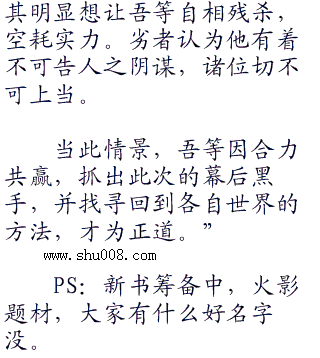 其明显想让吾等自相残杀，
空耗实力。劣者认为他有着
不可告人之阴谋，诸位切不
可上当。
当此情景，吾等因合力
共赢，抓出此次的幕后黑
手，并找寻回到各自世界的
方法，才为正道。”
www.shu008.com
PS：新书筹备中，火影
题材，大家有什么好名字
没。